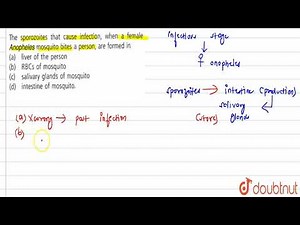 The sporozoites that cause infection, when a female
Anopheles mosquito bites a person, are formed in
(a) liver of the person
(b) RBCs of mosquito
(c) salivary glands of mosquito
(d) intestine of mosquito.
Infection stage
↓
♀ anopheles
sporozoites → intestine (production)
salivary
(store) glands
(a) → part infection
(b)
doubtnut